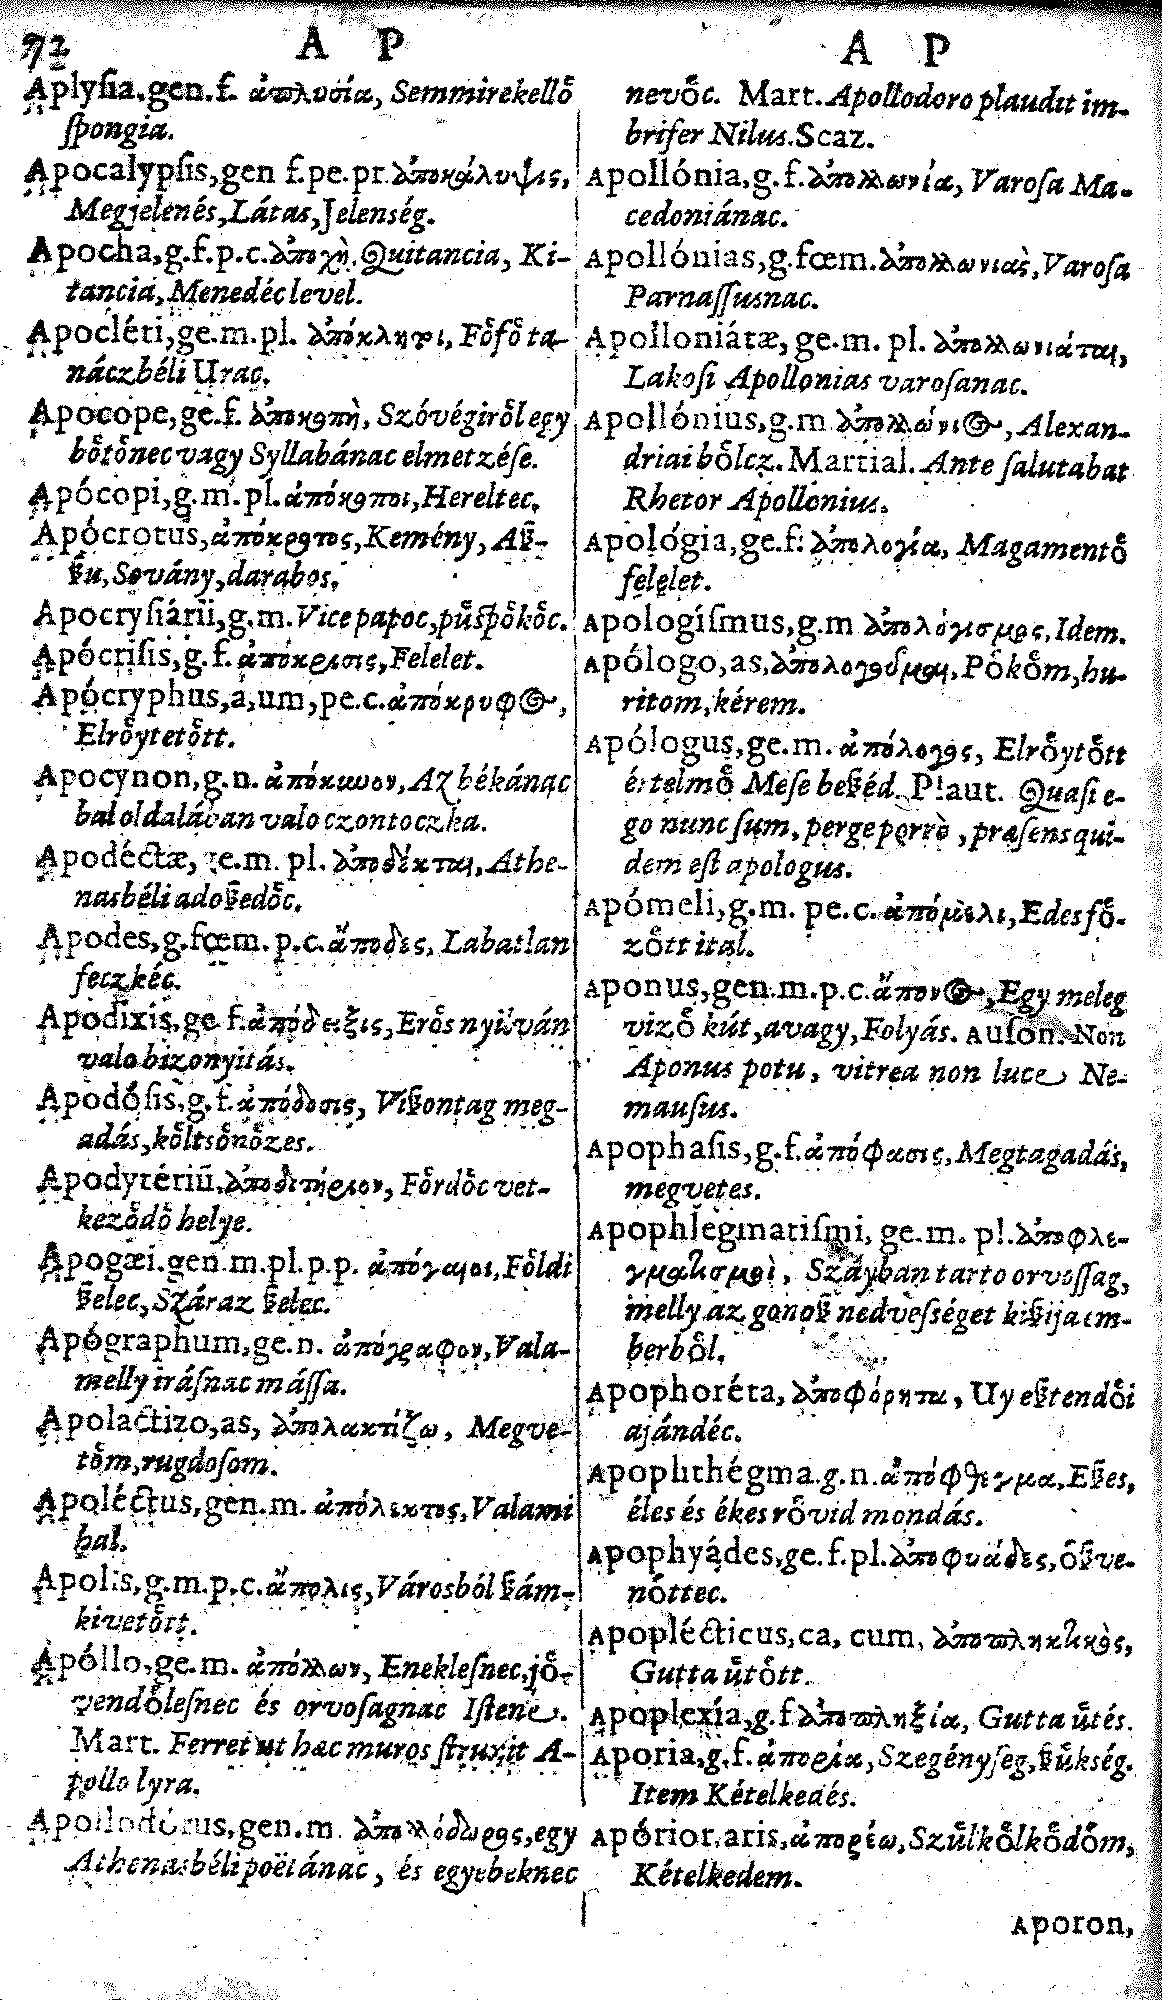 72 A P
Aplysia, gen. f. ἀπλυσία, Semmirekellő
spongia.
Apocalypsis, gen f. pe. pr. ἀποκάλυψις,
Megjelenés, Látas, Jelenség.
Apocha, g. f. p. c. ἀποχὴ. Quitancia, Ki-
tancia, Menedéc level.
Apocléti, ge. m. pl. ἀπόκλητοι, Főfő ta-
náczbéli Urac.
Apocope, ge. f. ἀποκοπὴ, Szóvégiről egy
bőtőnec vagy Syllabánac elmetzése.
Apócopi, g. m. pl. ἀπόκοποι, Hereltec.
Apócrotus, ἀπόκροτος, Kemény, Aß-
ßu, Sovány, darabos.
Apocrysiárii, g. m. Vice papoc, püspőkőc.
Apócrisis, g. f. ἀπόκρισις, Felelet.
Apócryphus, a, um, pe. c. ἀπόκρυφος,
Elrőytetőtt.
Apocynon, g. n. ἀπόκυνον, Az békánac
bal oldalában valo czontoczka.
Apodéctæ, ge. m. pl. ἀποδέκται, Athe-
nasbéli adoßedőc.
Apodes, g. fœm. p. c. ἄποδες, Labatlan
feczkéc.
Apodixis, ge f. ἀπόδειξις, Erős nyilván
valo bizonyitás.
Apodósis, g. f. ἀπόδοσις, Vißontag meg-
adás, kőltsőnőzes.
Apodytériũ, ἀποδυτήριον, Főrdőc vet-
keződő helye.
Apogæi. gen. m. pl. p. p. ἀπόγαιοι, Főldi
ßelec, Száraz ßelec.
Apógraphum, ge. n. ἀπόγραφον, Vala-
melly irásnac mássa.
Apolactizo, as, ἀπολακτίζω, Megve-
tőm, rugdosom.
Apoléctus, gen. m. ἀπόλεκτος, Valami
hal.
Apolis, g. m. p. c. ἄπολις, Városból ßám-
kivetőtt.
Apóllo, ge. m. ἀπόλλων, Eneklesnec, jő-
vendőlesnec és orvosagnac Istene.
Mart. Ferret ut hac muros struxit A-
pollo lyra.
Apollodórus, gen. m. ἀπολλόδωρος, egy
Athenasbéli poëtánac, és egyebeknec
A P
nevőc. Mart. Apollodoro plaudit im-
brifer Nilus. Scaz.
Apollónia, g. f. ἀπολλωνία, Varosa Ma-
cedoniánac.
Apollónias, g. fœm. ἀπολλωνιὰς, Varosa
Parnassusnac.
Apolloniátæ, ge. m. pl. ἀπολλωνιάται,
Lakosi Apollonias varosanac.
Apollónius, g. m ἀπολλώνιος, Alexan-
driai bőlcz. Martial. Ante salutabat
Rhetor Apollonius.
Apológia, ge. f: ἀπολογία, Magamentő
felelet.
Apologísmus, g. m ἀπολόγισμος, Idem.
Apólogo, as, ἀπολογοῦμαι, Pőkőm, hu-
ritom, kérem.
Apólogus, ge. m. ἀπόλογος, Elrőytőtt
értelmő Mese beßéd. Plaut. Quasi e-
go nunc sum, perge porrò, præsens qui-
dem est apologus.
Apómeli, g. m. pe. c. ἀπόμελι, Edes fő-
zőtt ital.
Aponus, gen. m. p. c. ἄπονος, Egy meleg
viző kút, avagy, Folyás. Auson. Non
Aponus potu, vitrea non luce Ne-
mausus.
Apophasis, g. f. ἀπόφασις, Megtagadás,
megvetes.
Apophlegmatismi, ge. m. pl. ἀποφλε-
γματισμοὶ, Száyban tarto orvossag,
melly az gonoß nedvességet kißija em-
berből.
Apophoréta, ἀποφόρητα, Uy eßtendői
ajándéc.
Apophthégma. g. n. ἀπόφθεγμα, Eßes,
éles és ékes rővid mondás.
Apophyádes, ge. f. pl. ἀποφυάδες, őßve-
nőttec.
Apopléćticus, ca, cum, ἀποπληκτικὸς,
Gutta űtőtt.
Apoplexía, g. f ἀποπληξία, Gutta űtés.
Aporia, g. f. ἀπορία, Szegénység, ßűkség.
Item Kételkedés.
Apórior, aris, ἀπορέω, Szűlkőlkődőm,
Kételkedem.
Aporon,